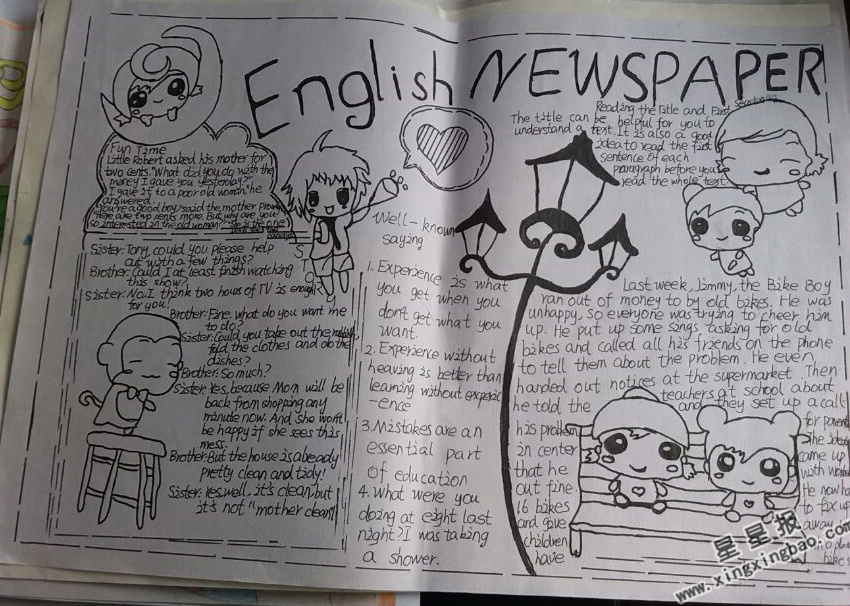 English NEWSPAPER
Fun Time
Little Robert asked his mother for
two cents. "What did you do with the
money I gave you yesterday?"
"I gave it to a poor old woman," he
answered
"You're a good boy," said the mother
"Here are two cents more. But why are you
so interested in the old woman?"
Sister: Tony, could you please help
out with a few things?
Brother: Could I at least finish watching
this show?
Sister: No. I think two hous of TV is enough
for you!
Brother: Fine, what do you want me
to do?
Sister: Could you take out the
fold the clothes and do the
dishes?
Brother: So much?
Sister: Yes, because Mom will be
back from shopping any
minute now. And she won't
be happy if she sees this
mess.
Brother: But the house is already
pretty clean and tidy!
Sister: Yes, well, it's clean, but
it's not "mother clean"
STORY
Well-known
saying
1. Experience is what
you get when you
don't get what you
want.
2. Experience without
learning is better than
learning without experi
-ence
3. Mistakes are an
essential part
of education
4. What were you
doing at eight last
night? I was taking
a shower.
Reading the Title and First
The title can be helpful for you to
understand a text. It is also a good
idea to read the first
sentence of each
paragraph before you
read the whole text
Last week, Jimmy, the Bike Boy
ran out of money to by old bikes. He was
unhappy, so everyone was trying to cheer him
up. He put up some sings asking for old
bikes and called all his friends on the phone
to tell them about the problem. He even
handed out notices at the supermarket. Then
he told the teachers at school about
his problem and they set up a call
in center for
that he The
out fine. came up
16 bikes with
and give He now
children to fix up
have away
bikes
星星报
www.xingxingbao.com